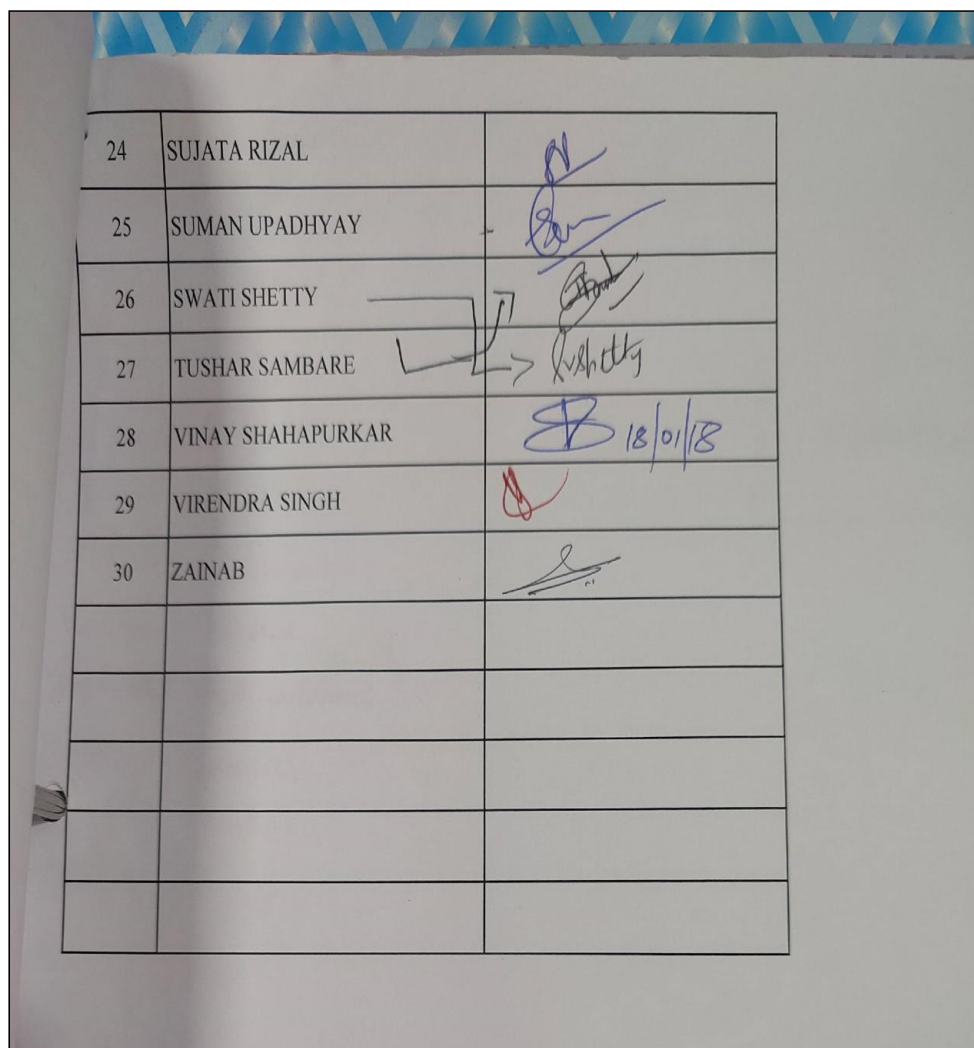 24 SUJATA RIZAL
25 SUMAN UPADHYAY
26 SWATI SHETTY
27 TUSHAR SAMBARE
28 VINAY SHAHAPURKAR 18/01/18
29 VIRENDRA SINGH
30 ZAINAB